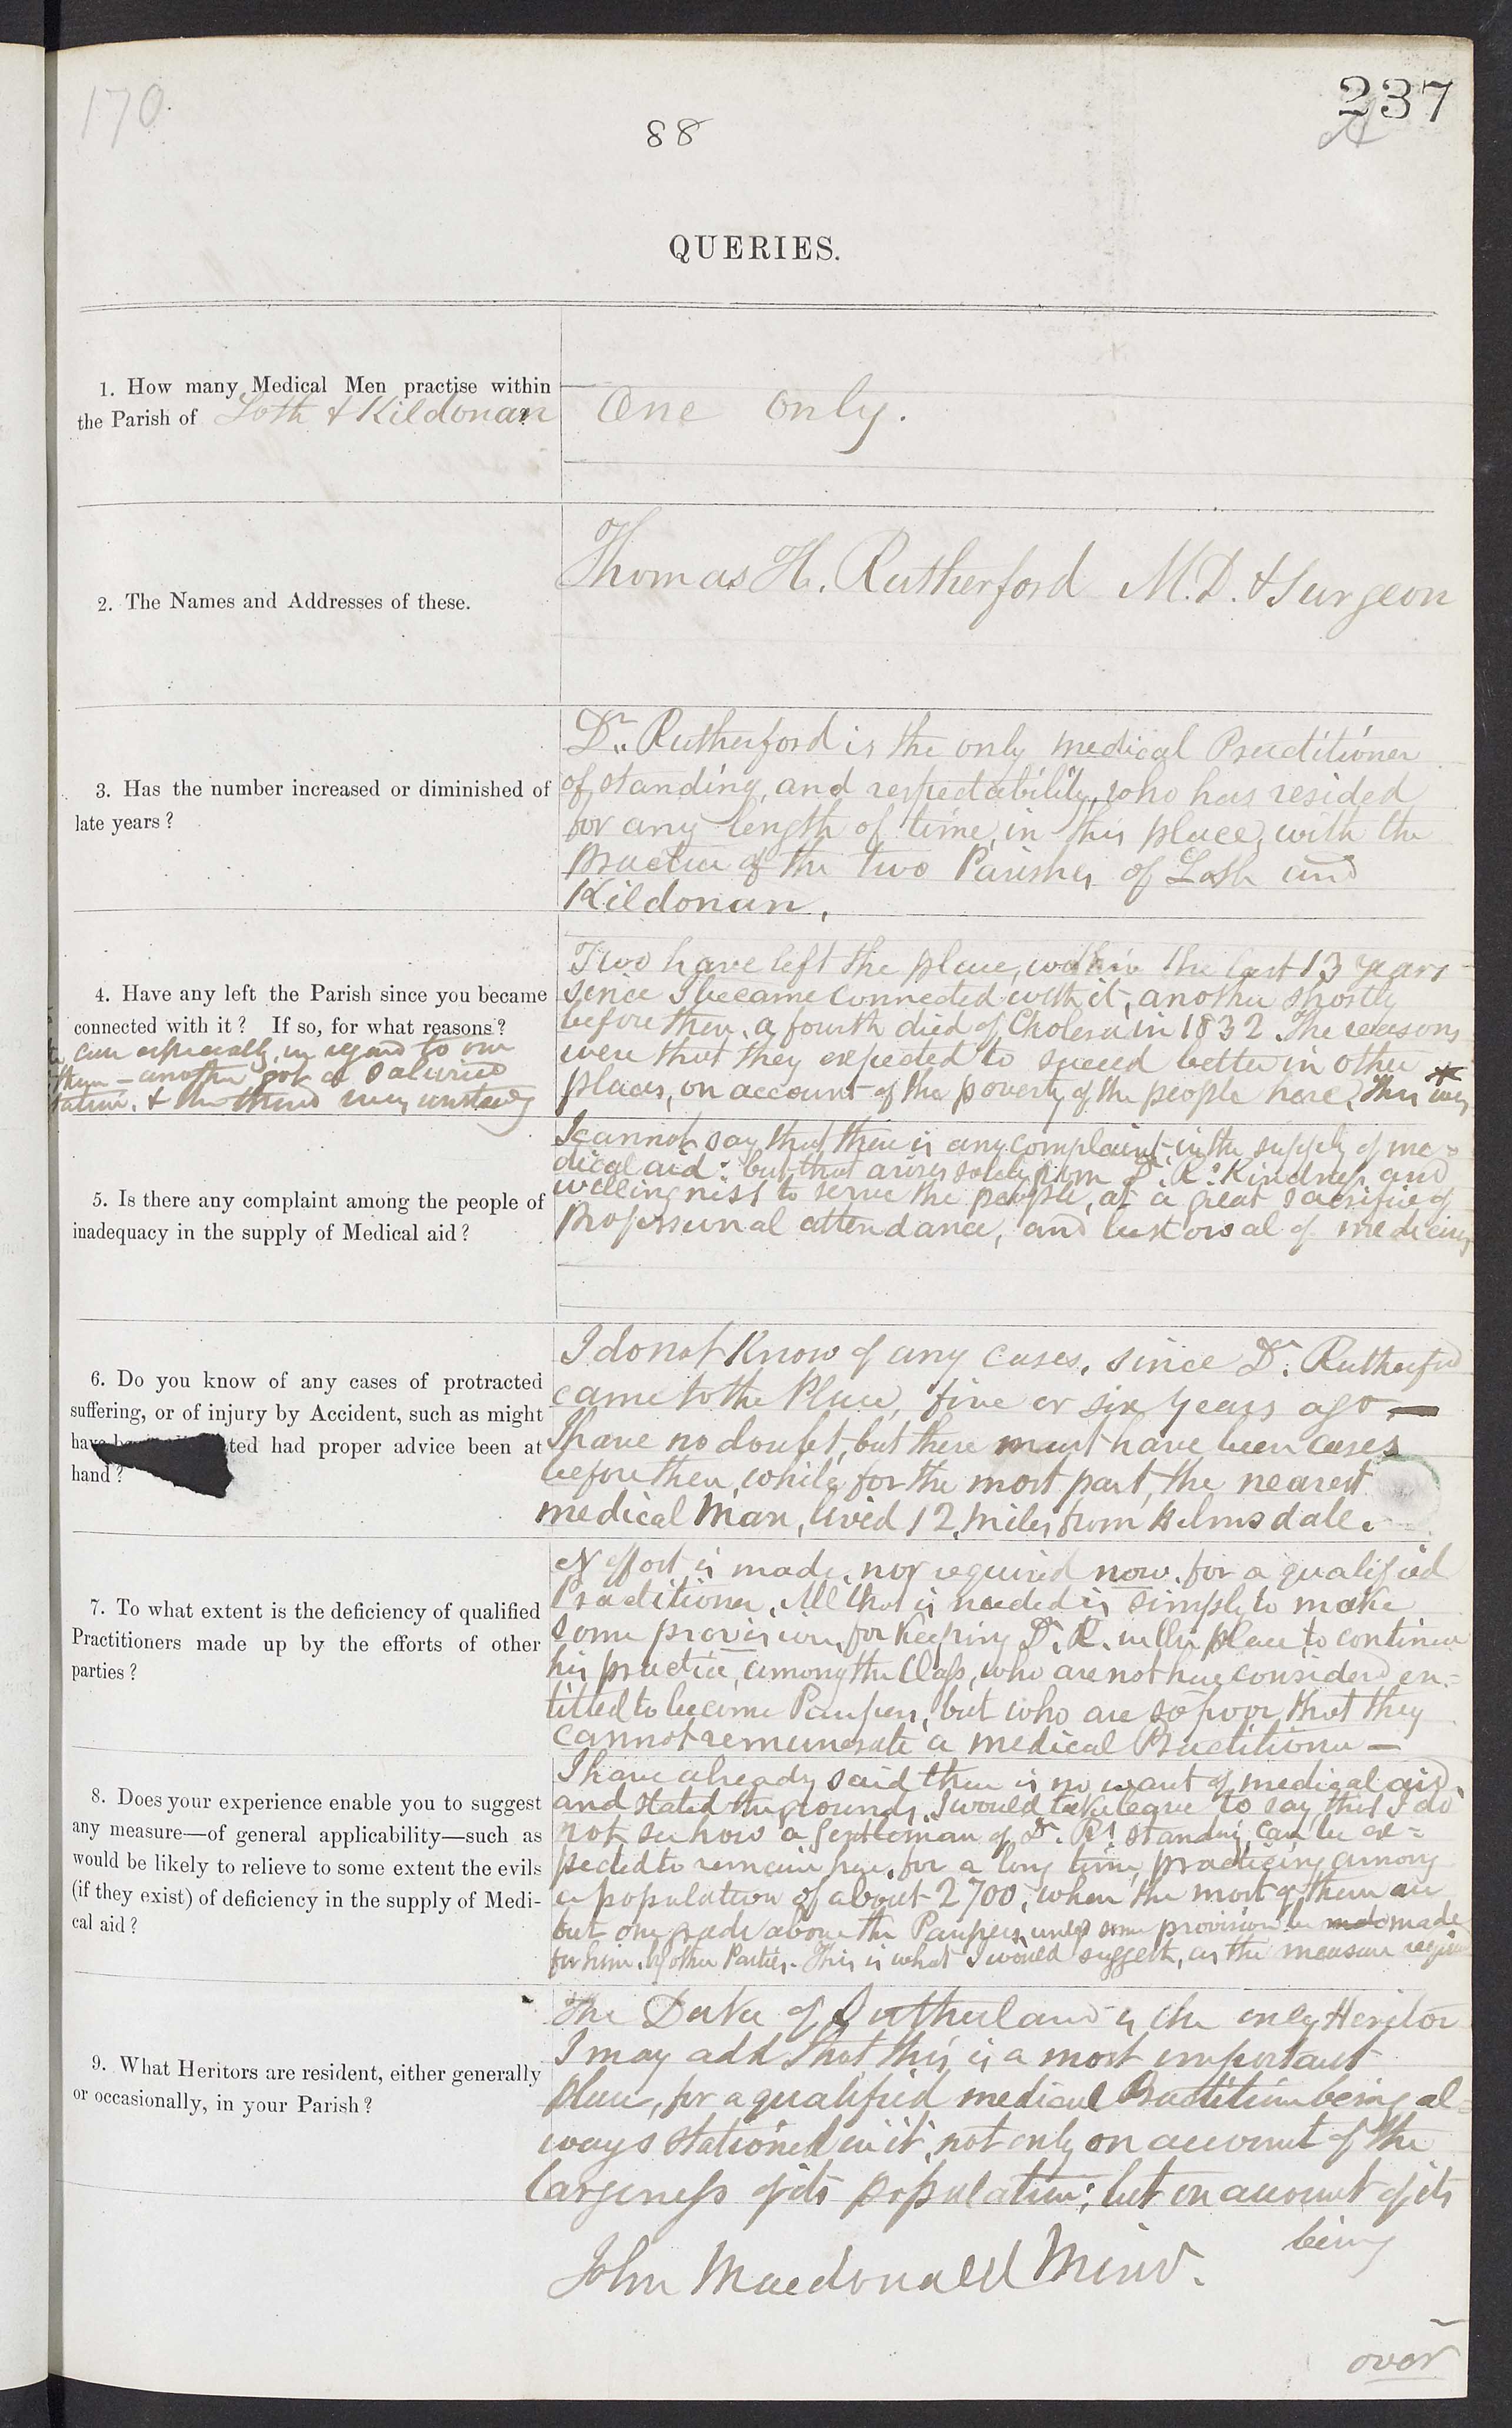 170.
237
88
QUERIES.
1. How many Medical Men practise within
the Parish of Loth & Kildonan?
One only.
2. The Names and Addresses of these.
Thomas H. Rutherford M.D. & Surgeon
3. Has the number increased or diminished of
late years?
Dr. Rutherford is the only medical Practitioner
of standing, and respectability, who has resided
for any length of time, in this place, with the
practice of the two Parishes of Loth and
Kildonan.
4. Have any left the Parish since you became
connected with it? If so, for what reasons?
case especially, in regard to one
them - another got a salaried
station. & the third was unsteady
Two have left the place, within the last 13 years
since I became connected with it, another shortly
before then. a fourth died of Cholera in 1832 The reasons
were that they expected to succeed better in other
places, on account of the poverty of the people here. This was *
5. Is there any complaint among the people of
inadequacy in the supply of Medical aid?
I cannot say that there is any complaint in the supply of me-
dical aid: but that arises solely from Dr. R's Kindness and
willingness to serve the people, at a great sacrifice of
Professional attendance, and bestowal of medicine
6. Do you know of any cases of protracted
suffering, or of injury by Accident, such as might
have ted had proper advice been at
hand?
I do not Know of any cases, since Dr. Rutherford
came to the Place, five or six years ago —
I have no doubt, but there must have been cases
before then, while for the most part, the nearest
medical Man, lived 12 miles from Helmsdale.
7. To what extent is the deficiency of qualified
Practitioners made up by the efforts of other
parties?
N effort is made, nor required now, for a qualified
Practitioner. All that is needed is simply to make
some provision, for Keeping Dr. R. in the place, to continue
his practice, among the Class, who are not here considered en-
titled to become Paupers, but who are so poor, that they
cannot remunerate a medical Practitioner —
8. Does your experience enable you to suggest
any measure—of general applicability—such as
would be likely to relieve to some extent the evils
(if they exist) of deficiency in the supply of Medi-
cal aid?
I have already said there is no want of medical aid,
and stated the grounds. I would take leave to say that I do
not see how a Gentleman of Dr. R's standing can be ex-
pected to remain here, for a long time, practicing among
a population of about 2700, when the most of them are
but one grade above the Paupers, unless some provision be made
for him, by other Parties. This is what I would suggest, as the measure required
9. What Heritors are resident, either generally
or occasionally, in your Parish?
The Duke of Sutherland is the only Heritor
I may add that this is a most important
place, for a qualified medical Practitioner being al-
ways stationed in it, not only on account of the
largeness of its population; but on account of its
being
John Macdonald Minr.
over